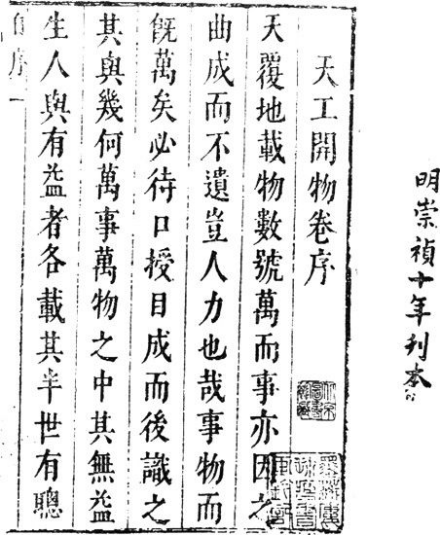 明崇禎十年刊本
天工開物卷序
天覆地載物數號萬而事亦因之
曲成而不遺豈人力也哉事物而
旣萬矣必待口授目成而後識之
其與幾何萬事萬物之中其無益
生人與有益者各載其半世有聰
序一